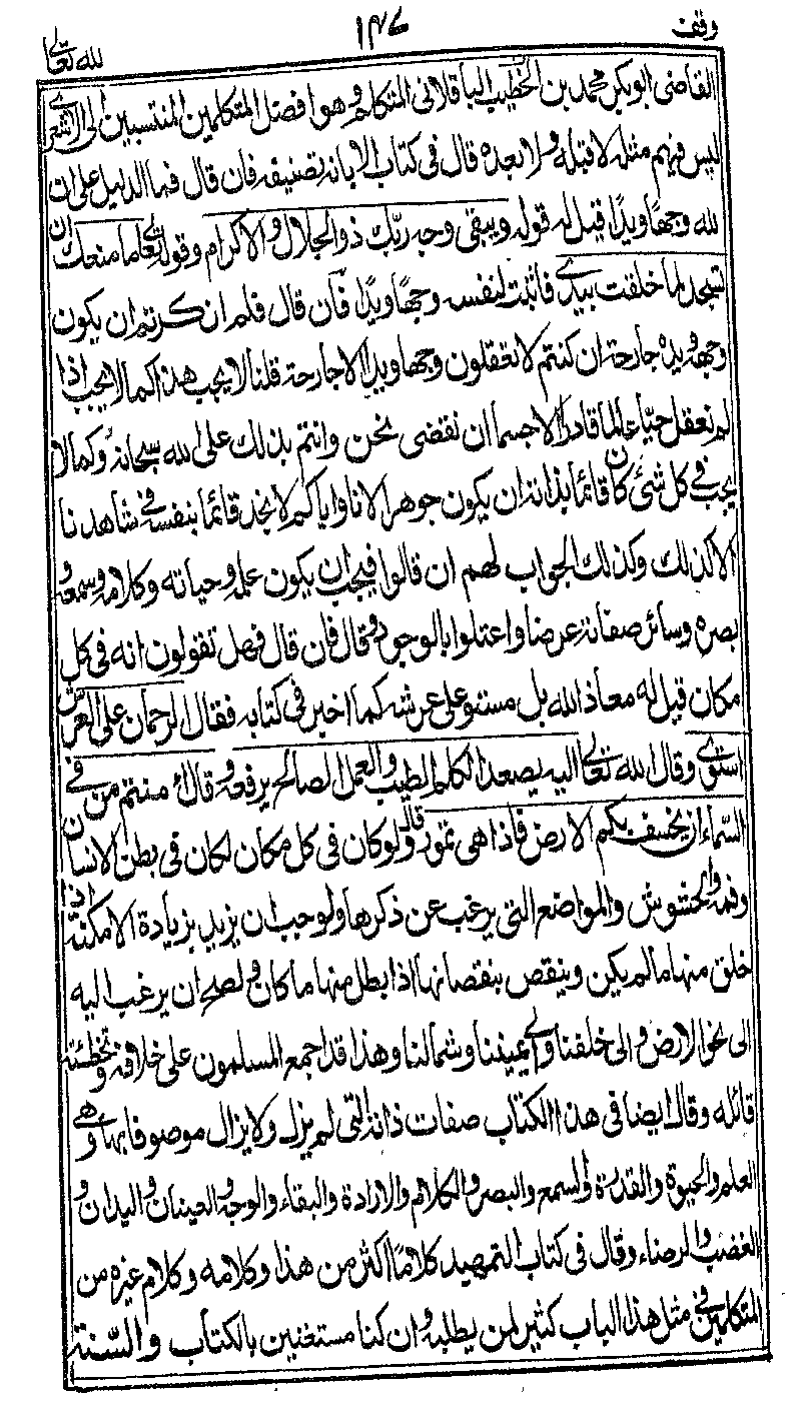 وقف ١٤٧ لله تعالى
القاضى ابوبكر محمد بن الخطيب الباقلانى المتكلم وهو افضل المتكلمين المنتسبين الى الاشعرى
ليس فيهم مثله لا قبله ولا بعده قال فى كتاب الابانة تصنيفه فان قال فما الدليل على ان
لله وجها ويدًا قيل له قوله ويبقى وجه ربك ذو الجلال والاكرام وقوله تعالى ما منعك ان
تسجد لما خلقت بيدى فاثبت لنفسه وجهًا ويدًا فان قال فلم انكرتم ان يكون
وجهه ويده جارحة ان كنتم لا تعقلون وجها ويدا الا جارحة قلنا لا يجب هذا كما لا يجب اذا
لم نعقل حيّا عالما قادرا الا جسما ان نقضى نحن وانتم بذلك على الله سبحانه وكما لا
يجب فى كل شئ كان قائما بذاته ان يكون جوهرا لانا واياكم لا نجد قائما بنفسه فى شاهدنا
الا كذلك وكذلك الجواب لهم ان قالوا فيجب ان يكون علمه وحياته وكلامه وسمعه و
بصره وسائر صفاته عرضا واعتلوا بالوجود وقال فان قال فهل تقولون انه فى كل
مكان قيل له معاذ الله بل مستو على عرشه كما اخبر فى كتابه فقال الرحمان على العرش
استوى وقال الله تعالى اليه يصعد الكلم الطيب والعمل الصالح يرفعه وقال ءامنتم من فى
السماء ان يخسف بكم الارض فاذا هى تمور قال ولو كان فى كل مكان لكان فى بطن الانسان
وفمه والحشوش والمواضع التى يرغب عن ذكرها ولوجب ان يزيد بزيادة الامكنة اذا
خلق منها ما لم يكن وينقص بنقصانها اذا بطل منها ما كان ولصح ان يرغب اليه
الى نحو الارض والى خلفنا والى يميننا وشمالنا وهذا قد اجمع المسلمون على خلافه وتخطئة
قائله وقال ايضا فى هذا الكتاب صفات ذاته التى لم يزل ولا يزال موصوفا بها وهى
العلم والحيوة والقدرة والسمع والبصر والكلام والارادة والبقاء والوجه والعينان واليدان و
الغضب والرضاء وقال فى كتاب التمهيد كلامًا اكثر من هذا وكلامه وكلام غيره من
المتكلمين فى مثل هذا الباب كثير لمن يطلبه وان كنا مستغنين بالكتاب والسنة